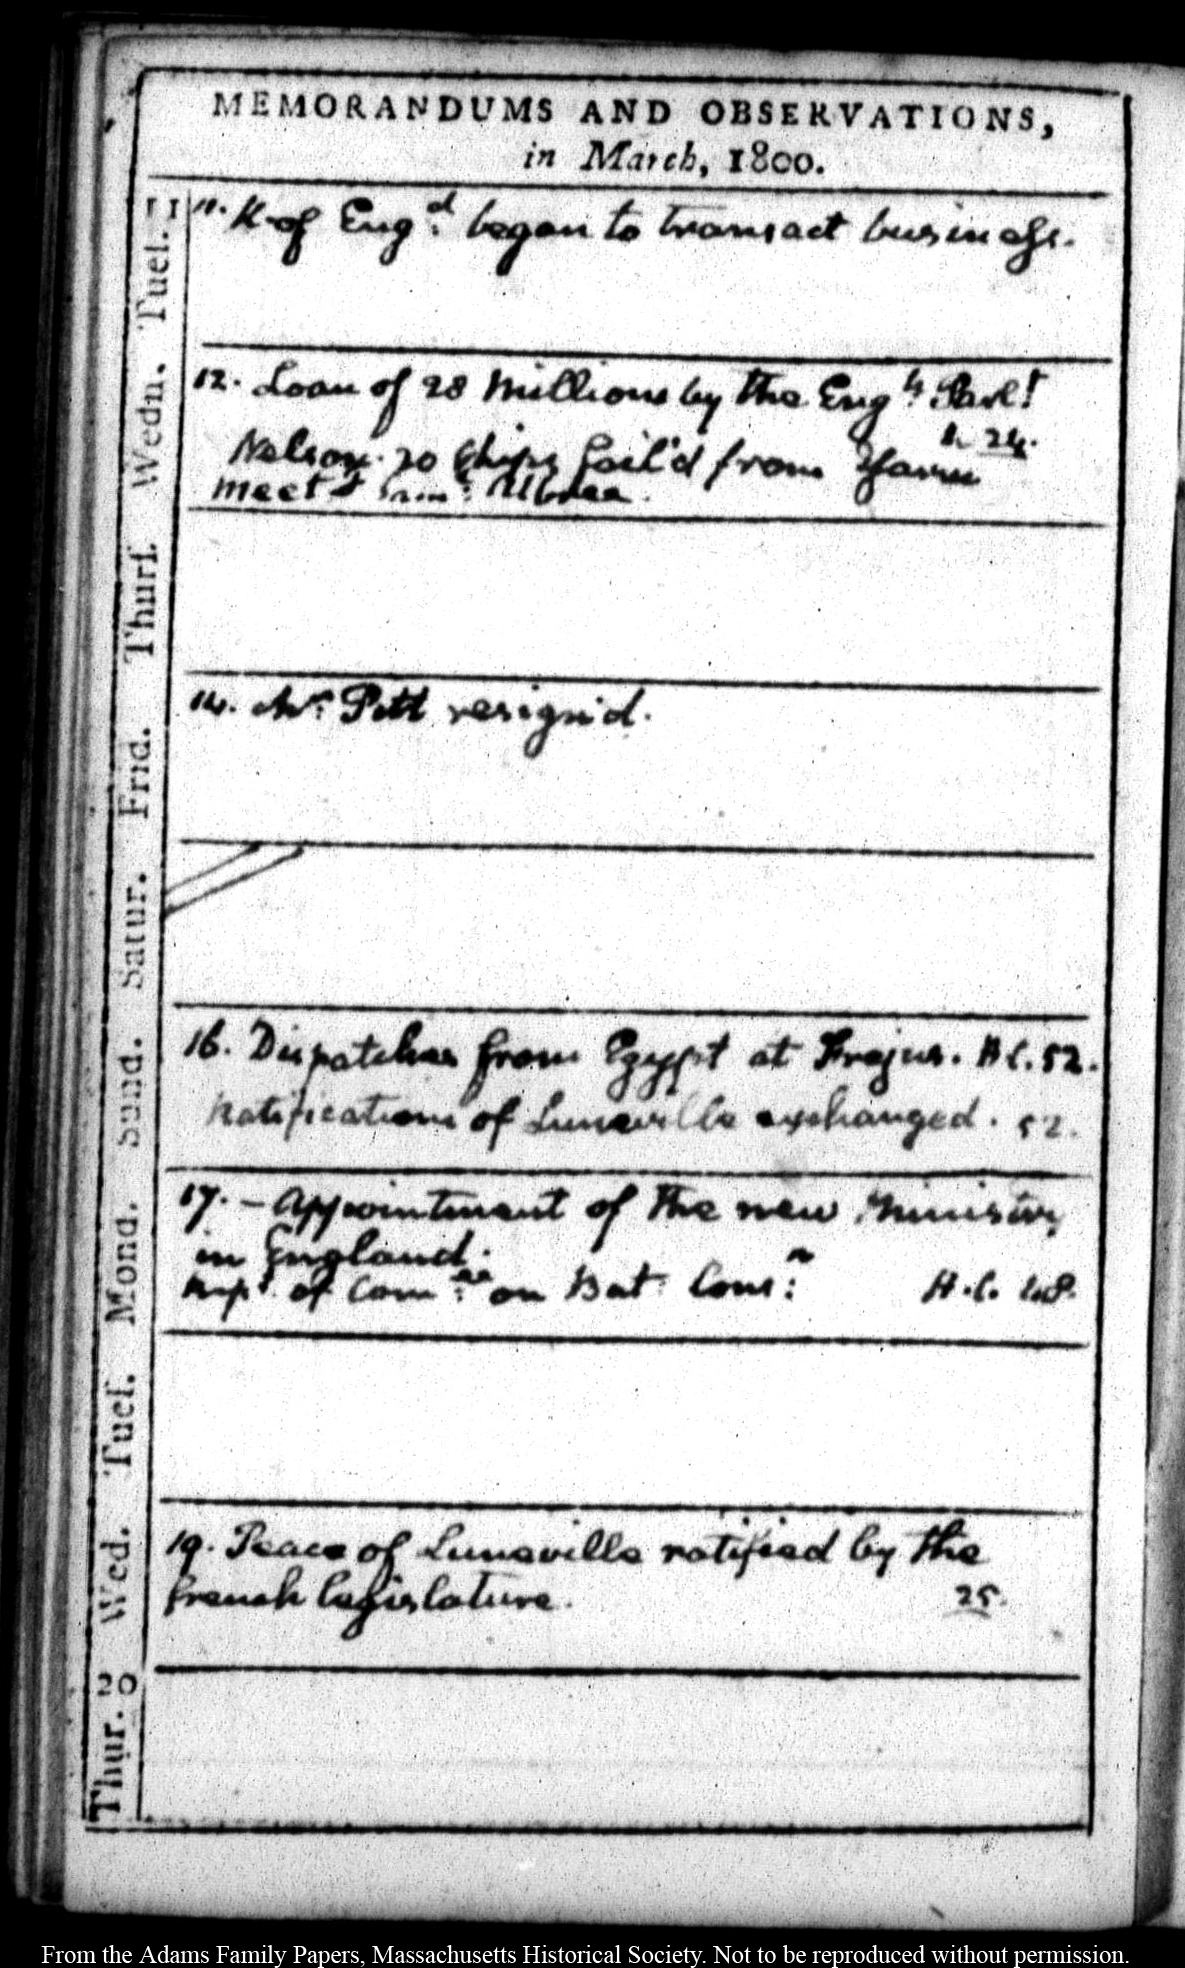 MEMORANDUMS AND OBSERVATIONS,
in March, 1800.
Tues. 11
11. K. of Eng.d began to transact business.
Wedn.
12. Loan of 28 Millions by the Eng.h Parl.t
24.
Nelson. 20 Ships sail'd from
meet
Thurs.
Frid.
14. Mr. Pitt resign'd.
Satur.
Sund.
16. Dispatches from Egypt at Frejus. H C. 52.
Ratifications of Luneville exchanged. 52.
Mond.
17. - Appointment of the new Ministry
in England.
of Com.ee on Bat. Cons:n H. C. 48.
Tues.
Wed.
19. Peace of Luneville ratified by the
french legislature. 25.
Thur. 20
From the Adams Family Papers, Massachusetts Historical Society. Not to be reproduced without permission.